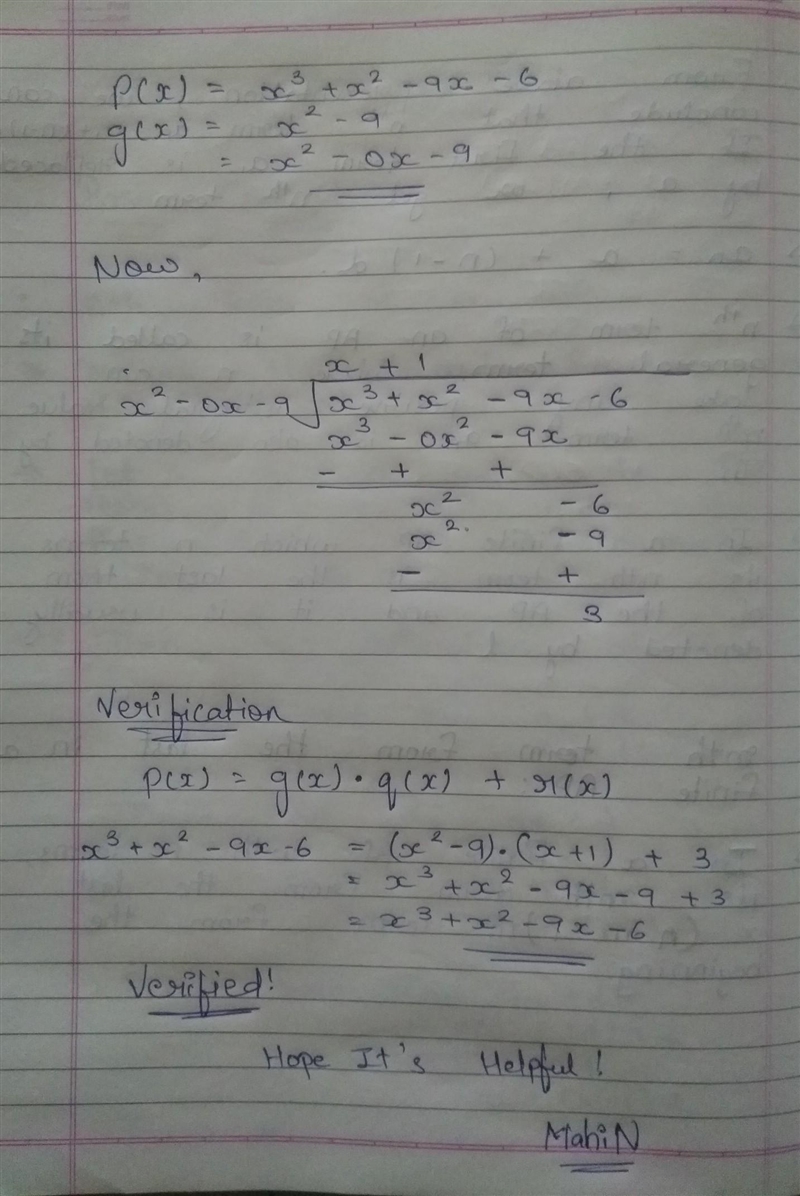 P(x) = x³ + x² - 9x - 6
g(x) = x² - 9
= x² - 0x - 9
Now,
x + 1
x² - 0x - 9 √ x³ + x² - 9x - 6
x³ - 0x² - 9x
- + +
x² - 6
x² - 9
- +
3
Verification
p(x) = g(x) · q(x) + r(x)
x³ + x² - 9x - 6 = (x² - 9) · (x + 1) + 3
= x³ + x² - 9x - 9 + 3
= x³ + x² - 9x - 6
Verified!
Hope It's Helpful!
MahiN